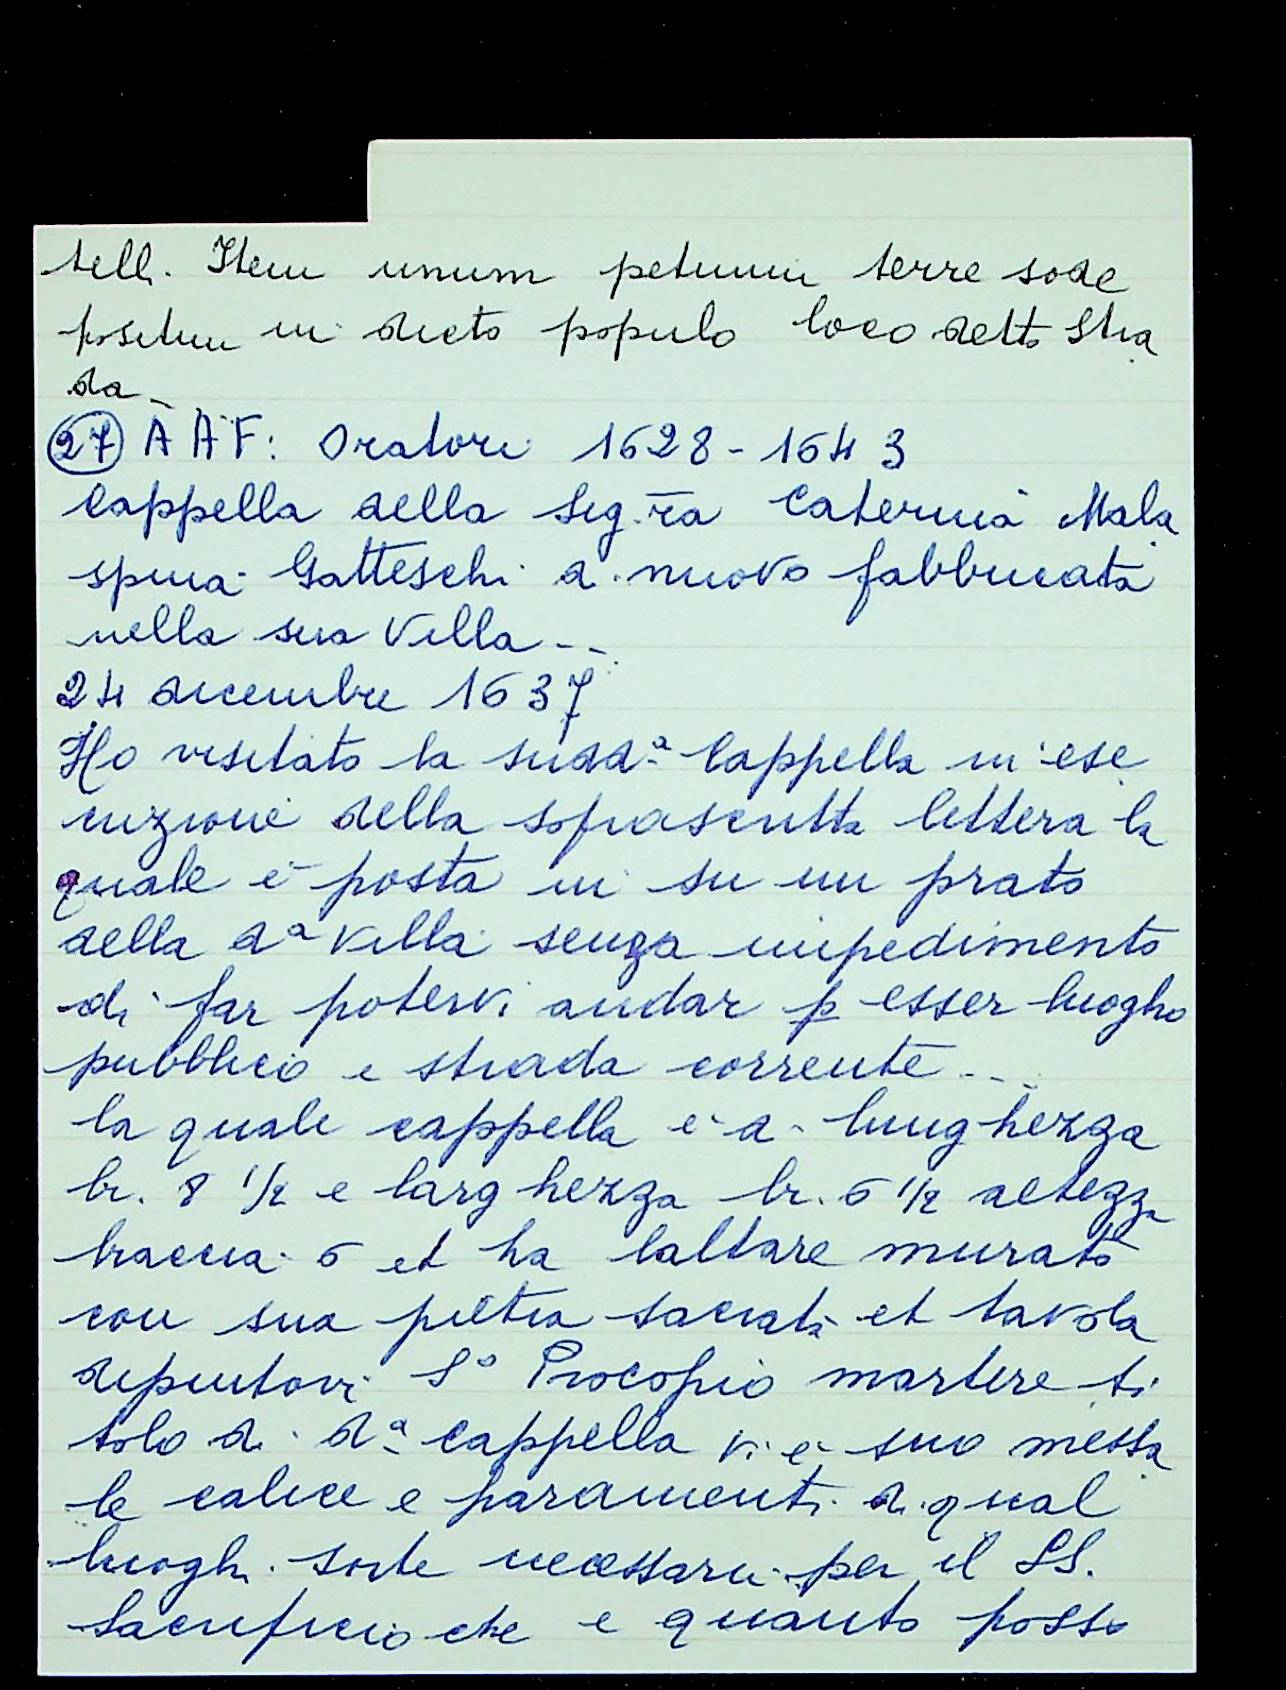 tell. Item unum petium terre sode
positum in dicto populo loco detto Stra
da -
27 A A F: Oratori 1628 - 1643
Cappella della Sig.ra Caterina Mala
spina Gatteschi di nuovo fabbricata
nella sua Villa - -
24 dicembre 1637
Ho visitato la sudd.a Cappella in ese
cuzione della soprascritta lettera la
quale è posta in su un prato
della d.a Villa senza impedimento
di far potervi andar p esser luogho
pubblico e strada corrente - - -
la quale cappella è di lunghezza
br. 8 1/2 e larghezza br. 6 1/2 altezza
braccia 6 et ha laltare murato
con sua pietra sacrata et tavola
dipintovi S.o Procopio martire ti
tolo di d.a cappella vi è suo messa
le calice e paramenti di qual
luogh. sorte necessari per il SS.
Sacrificio che è quanto posso